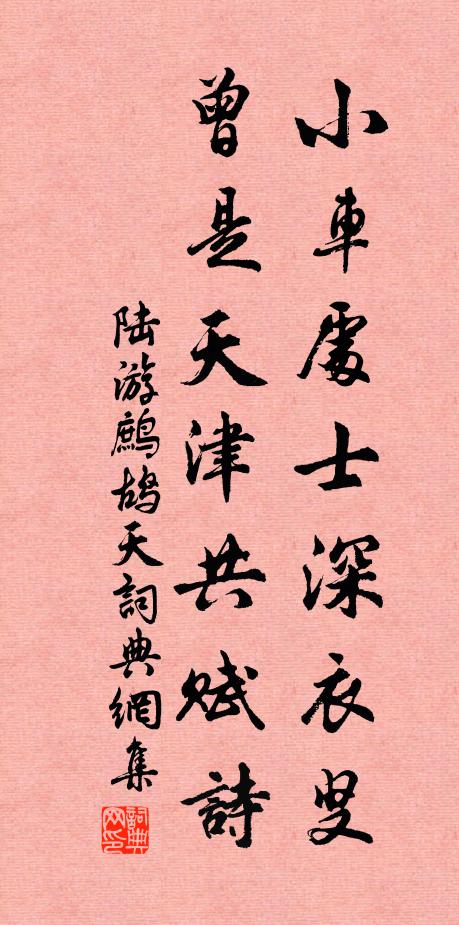 小車處士深衣叟
曾是天津共賦詩
陸游鷓鴣天詞典網集
詞典網印